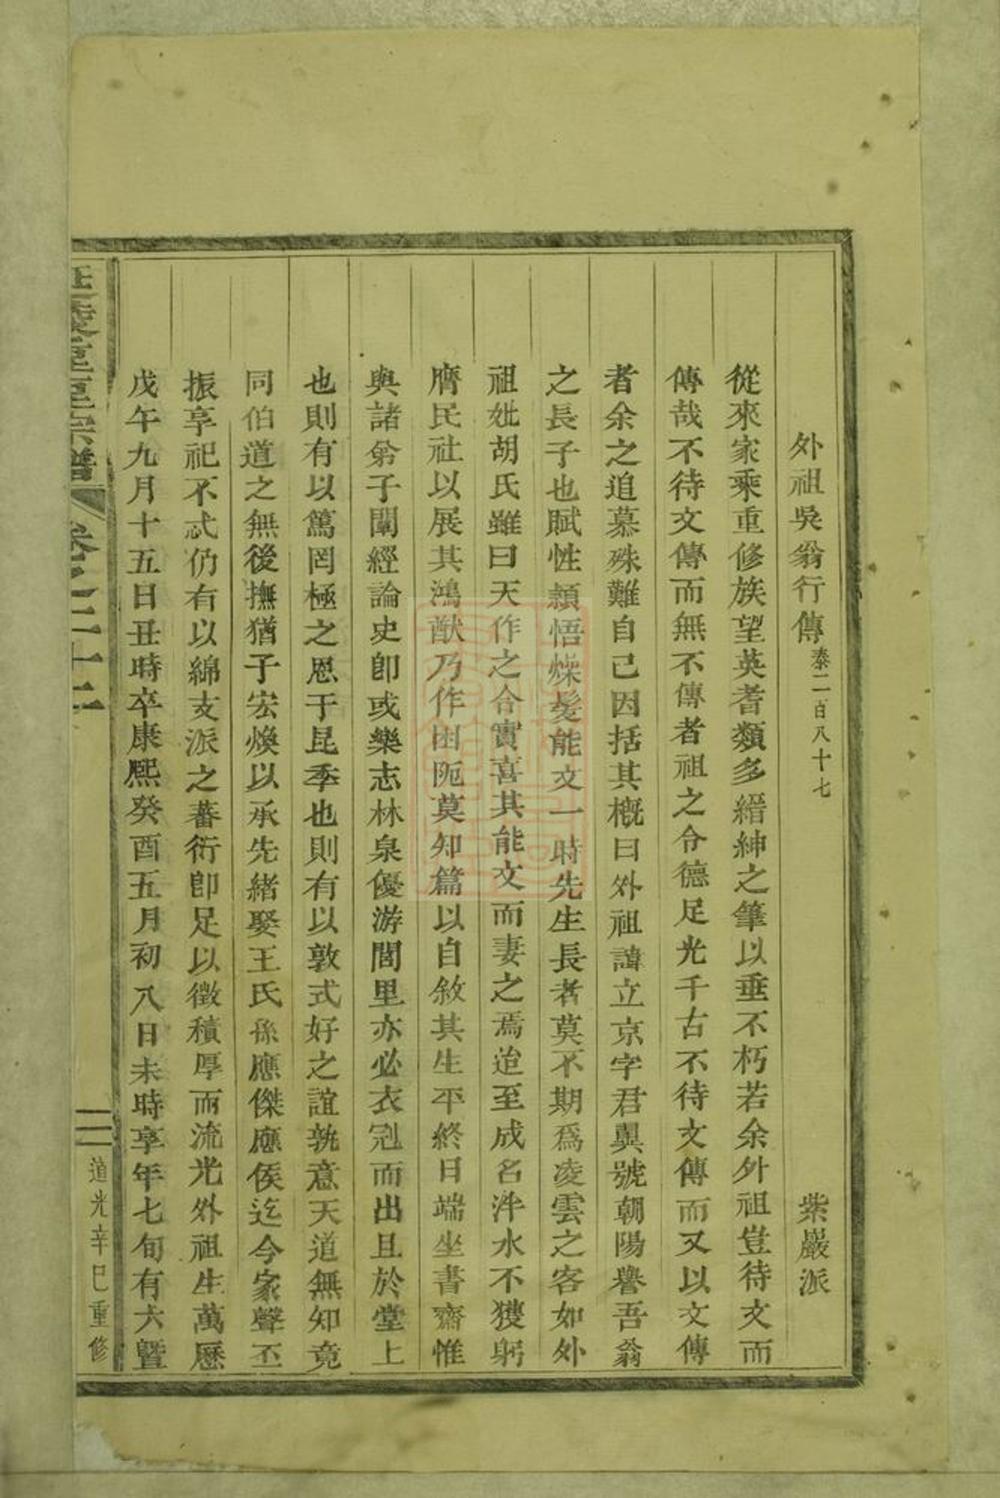 外祖吳翁行傳泰二百八十七 紫巖派
從來家乘重修族望英耆類多縉紳之筆以垂不朽若余外祖豈待文而
傳哉不待文傳而無不傳者祖之令德足光千古不待文傳而又以文傳
者余之追慕殊難自己因括其概曰外祖諱立京字君與號朝陽譽吾翁
之長子也賦性穎悟燥髮能文一時先生長者莫不期爲凌雲之客如外
祖妣胡氏雖曰天作之合實喜其能文而妻之焉迨至成名泮水不獲躬
膺民社以展其鴻猷乃作困阨莫知篇以自敘其生平終日端坐書齋惟
與諸弟子闡經論史卽或樂志林泉優游閭里亦必衣冠而出且於堂上
也則有以篤罔極之恩于昆季也則有以敦式好之誼孰意天道無知竟
同伯道之無後撫猶子宏煥以承先緒娶王氏孫應傑應侯迄今家聲丕
振享祀不忒仍有以綿支派之蕃衍卽足以徵積厚而流光外祖生萬曆
戊午九月十五日丑時卒康熙癸酉五月初八日未時享年七旬有六暨
宗譜 卷之二十二 二 道光辛巳重修